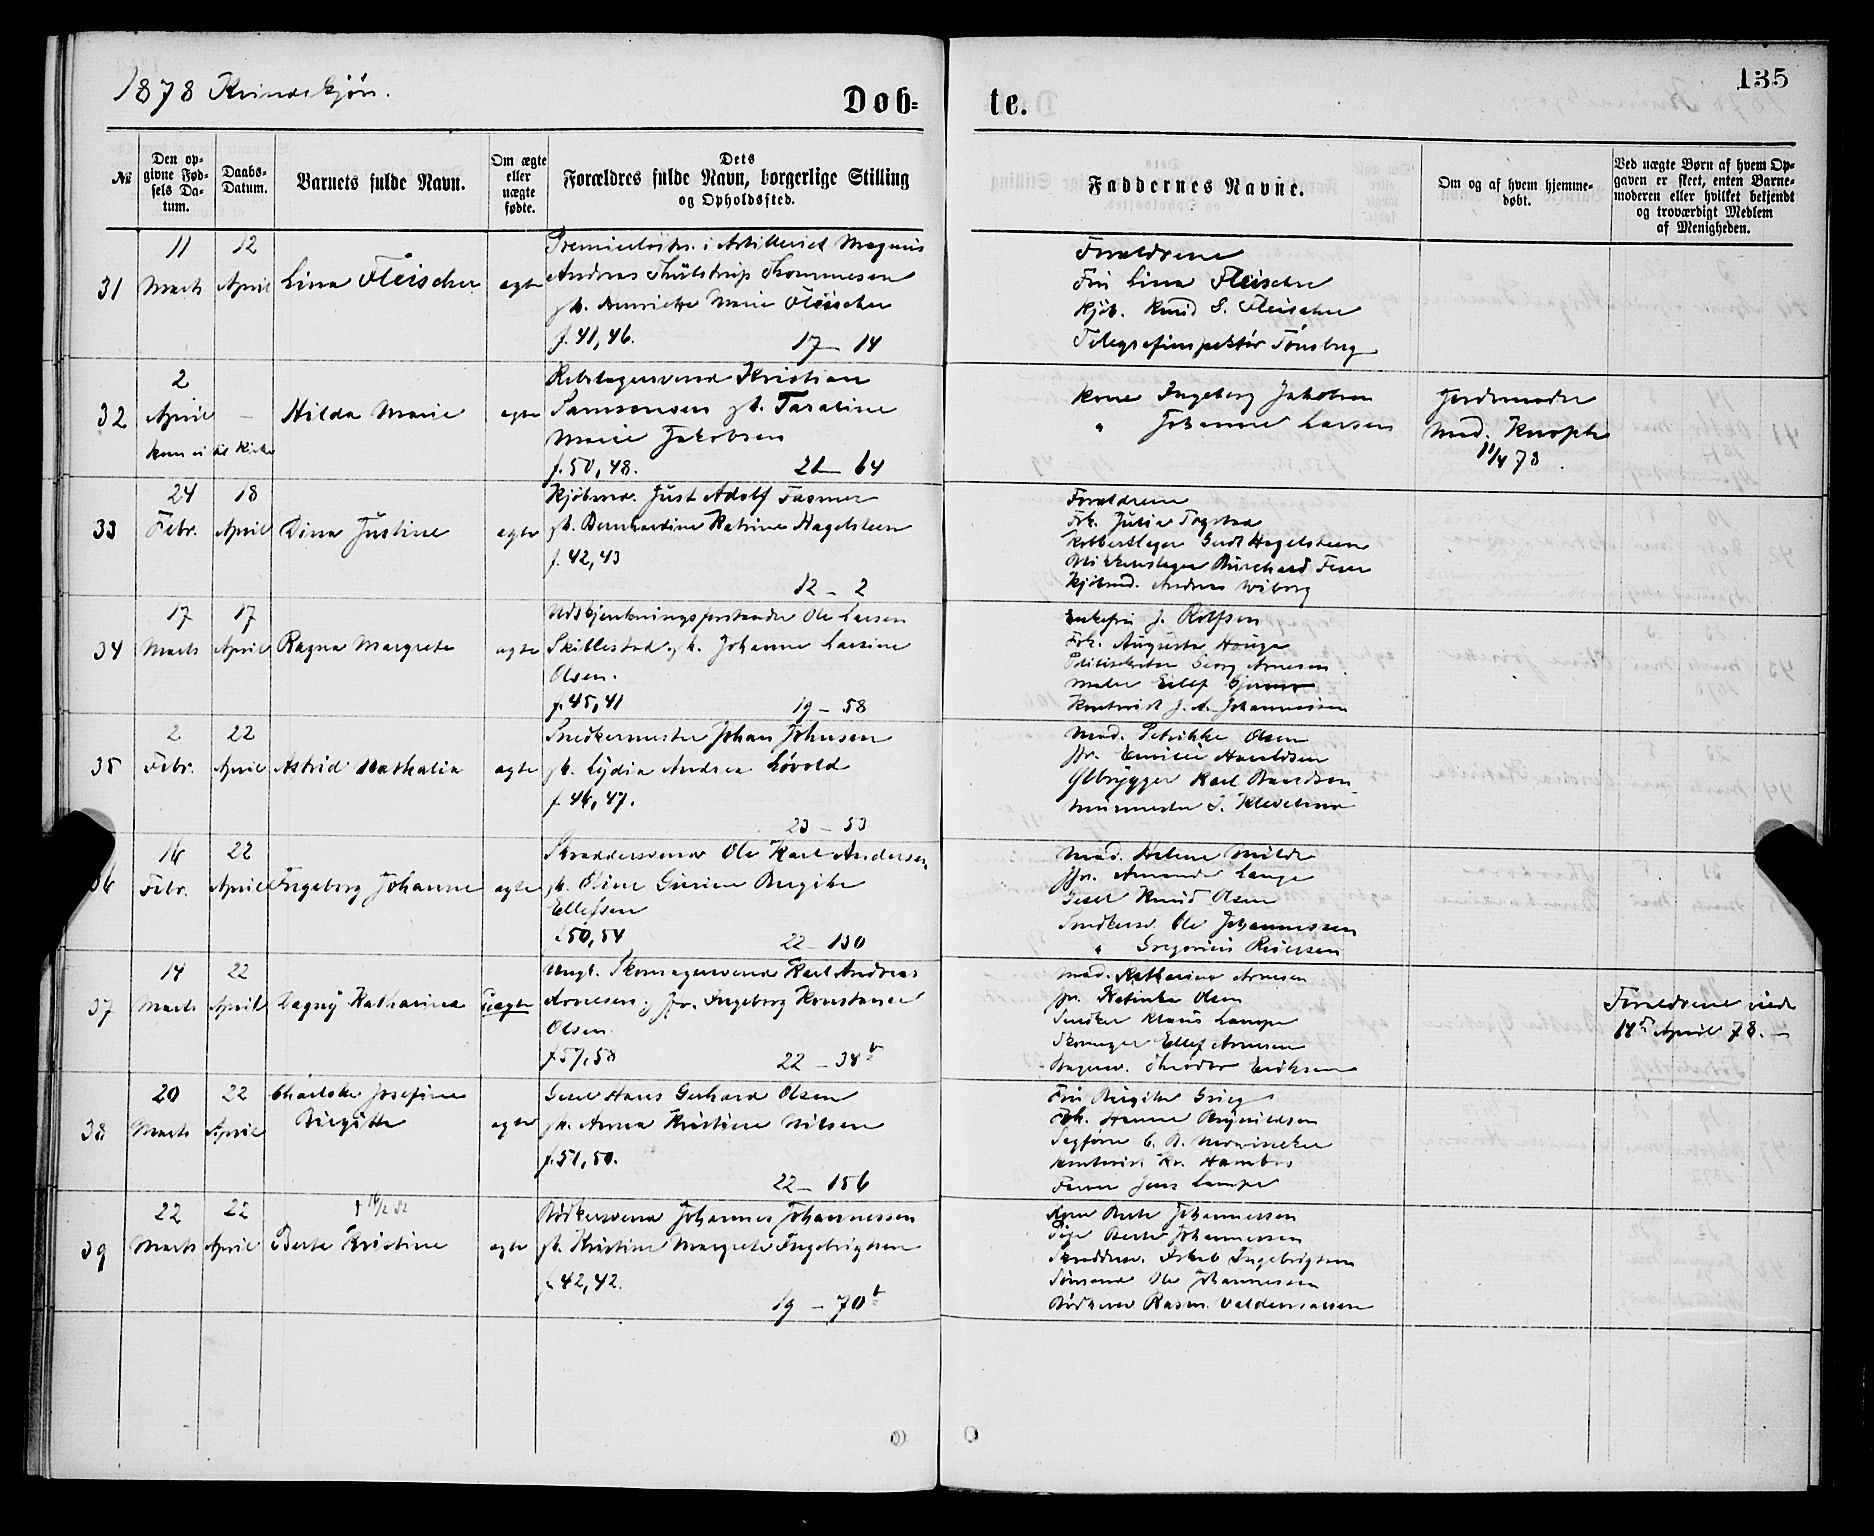 1878 Kvindekjøn.
Døb-
te.
135
№
Den op-
givne Fød-
sels Da-
tum.
Daabs-
Datum.
Barnets fulde Navn.
Om ægte
eller
uægte
fødte.
Dets
Forældres fulde Navn, borgerlige Stilling
og Opholdssted.
Faddernes Navne.
Om og af hvem hjemme-
døbt.
Ved uægte Børn af hvem Op-
gaven er skeet, enten Barne-
moderen eller hvilket bekjendt
og troværdigt Medlem
af Menigheden.
31
11
Marts
12
April
Lina Fleischer
ægte
Premierløitn. i Artilleriet Magnus
Andreas Thommesen
Henriette Marie Fleischer
f. 41, 46.
17 - 14
Forældrene
Fru Lina Fleischer
Kjøb. Knud S. Fleischer
Telegrafinspektør Tønsberg
32
2
April
-
kun ei til Kirke
Hilda Marie
ægte
Rebslagersvend Kristian
Samsonsen Taraline
Marie Jakobsen
f. 50, 48.
21 - 64
Kone Ingeborg Jakobsen
" Johanne Larsen
Jordemoder
Mad. Knoph
11/4 78.
33
24
Febr.
18
April
Dina Justine
ægte
Kjøbmd. Just Adolf Fasmer
Bernhardine Katrine Hagelsteen
f. 42, 43
12 - 2
Forældrene
Frk. Julia Fogstad
Kobberslager Gerdt Hagelsteen
Blikkenslager Burchard
Kjøbmd. Andreas Wiborg
34
17
Marts
17
April
Ragna Margrete
ægte
Udskjenkningsforstander Ole Larsen
Skillestad Johanne Larsine
Olsen.
f. 45, 41
19 - 58
Enkefru J. Rolfsen
Frk. Augusta Hauge
Georg Arnesen
Maler Eilef
Kontorist J. A. Johannessen
35
2
Febr.
22
April
Astrid Nathalia
ægte
Snedkermester Johan Johnsen
Lydia Andrea Løvold
f. 46, 47.
23 - 53
Mad. Petrikke Olsen
Jfr. Emilie Haraldsen
Ølbrygger Karl Baardsen
Murmester
36
16
Febr.
22
April
Ingeborg Johanne
ægte
Skræddersvend Ole Karl Andersen
Oline Gurine Birgitte
Ellefsen
50, 54
22 - 130
Mad. Helene Milde
Jfr. Amanda Lange
Gesel Knud Olsen
Snedkersv. Ole Johannessen
" Gregorius Reiersen
37
14
Marts
22
April
Dagny Katharina
Uægte
Ungk. Skomagersvend Karl Andreas
Arnesen, Jfr. Ingeborg Konstanse
Olsen.
f. 57, 58
22 - 38 b
Mad. Katharina Arnesen
Jfr. Katinka Olsen
Snedker Klaus Lampe
Skomager Ellef Arnesen
Theodor Eriksen
Forældrene viede
14de April 78. -
38
20
Marts
22
April
Charlotte Josefine
Birgitte
ægte
Gesel Hans Gerhard Olsen
Anna Kristine Nilsen
f. 51, 50.
22 - 156
Fru Birgitte Grieg
Frk. Hanna Brynildsen
Sagfører C. B.
Kontorist Kr. Hambro
Farver Jens Lampe
39
22
Marts
22
April
† 16/2 82
Berte Kristine
ægte
Bødkersvend Johannes Johannessen
Kristine Margrete Ingebrigtsen
42, 42.
19 - 70 b
Kone Berte Johannessen
Pige Berte Johannessen
Skræddersv. Ingebrigtsen
Ole Johannessen
Bødkersv Rasm. Valdemarsen